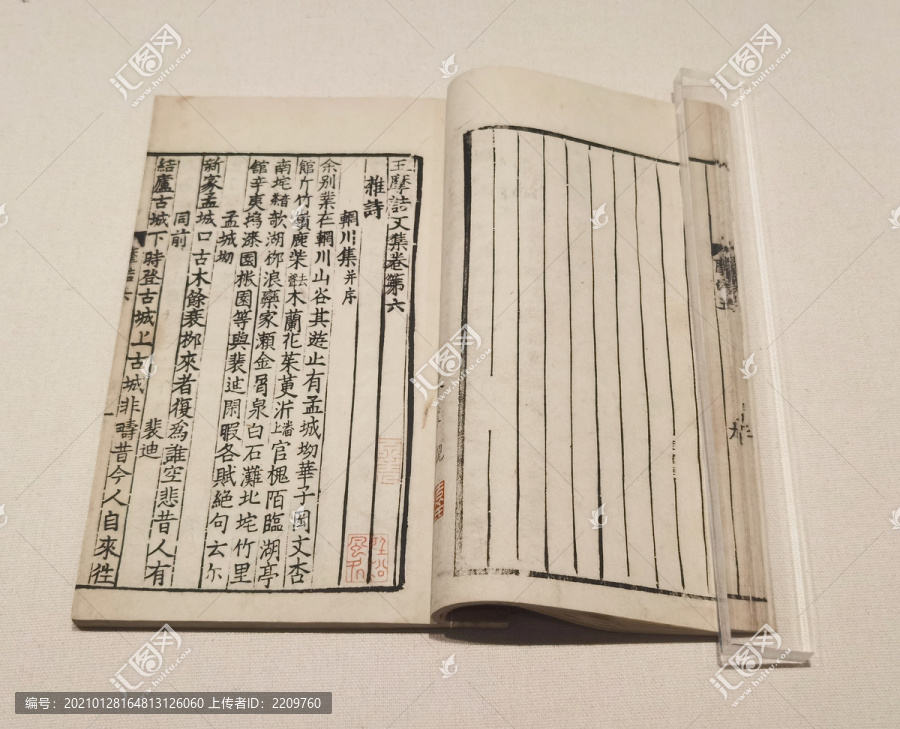 王摩詰文集卷第六
雜詩
輞川集并序
余別業在輞川山谷其遊止有孟城坳華子岡文杏
館斤竹嶺鹿柴木蘭花茱萸沜官槐陌臨湖亭
南垞欹湖柳浪欒家瀨金屑泉白石灘北垞竹里
館辛夷塢漆園椒園等與裴迪閑暇各賦絕句云尒
孟城坳
新家孟城口古木餘衰柳來者復爲誰空悲昔人有
同前 裴迪
結廬古城下時登古城上古城非疇昔今人自來徃
汇图网
www.huitu.com
编号：20210128164813126060 上传者ID：2209760